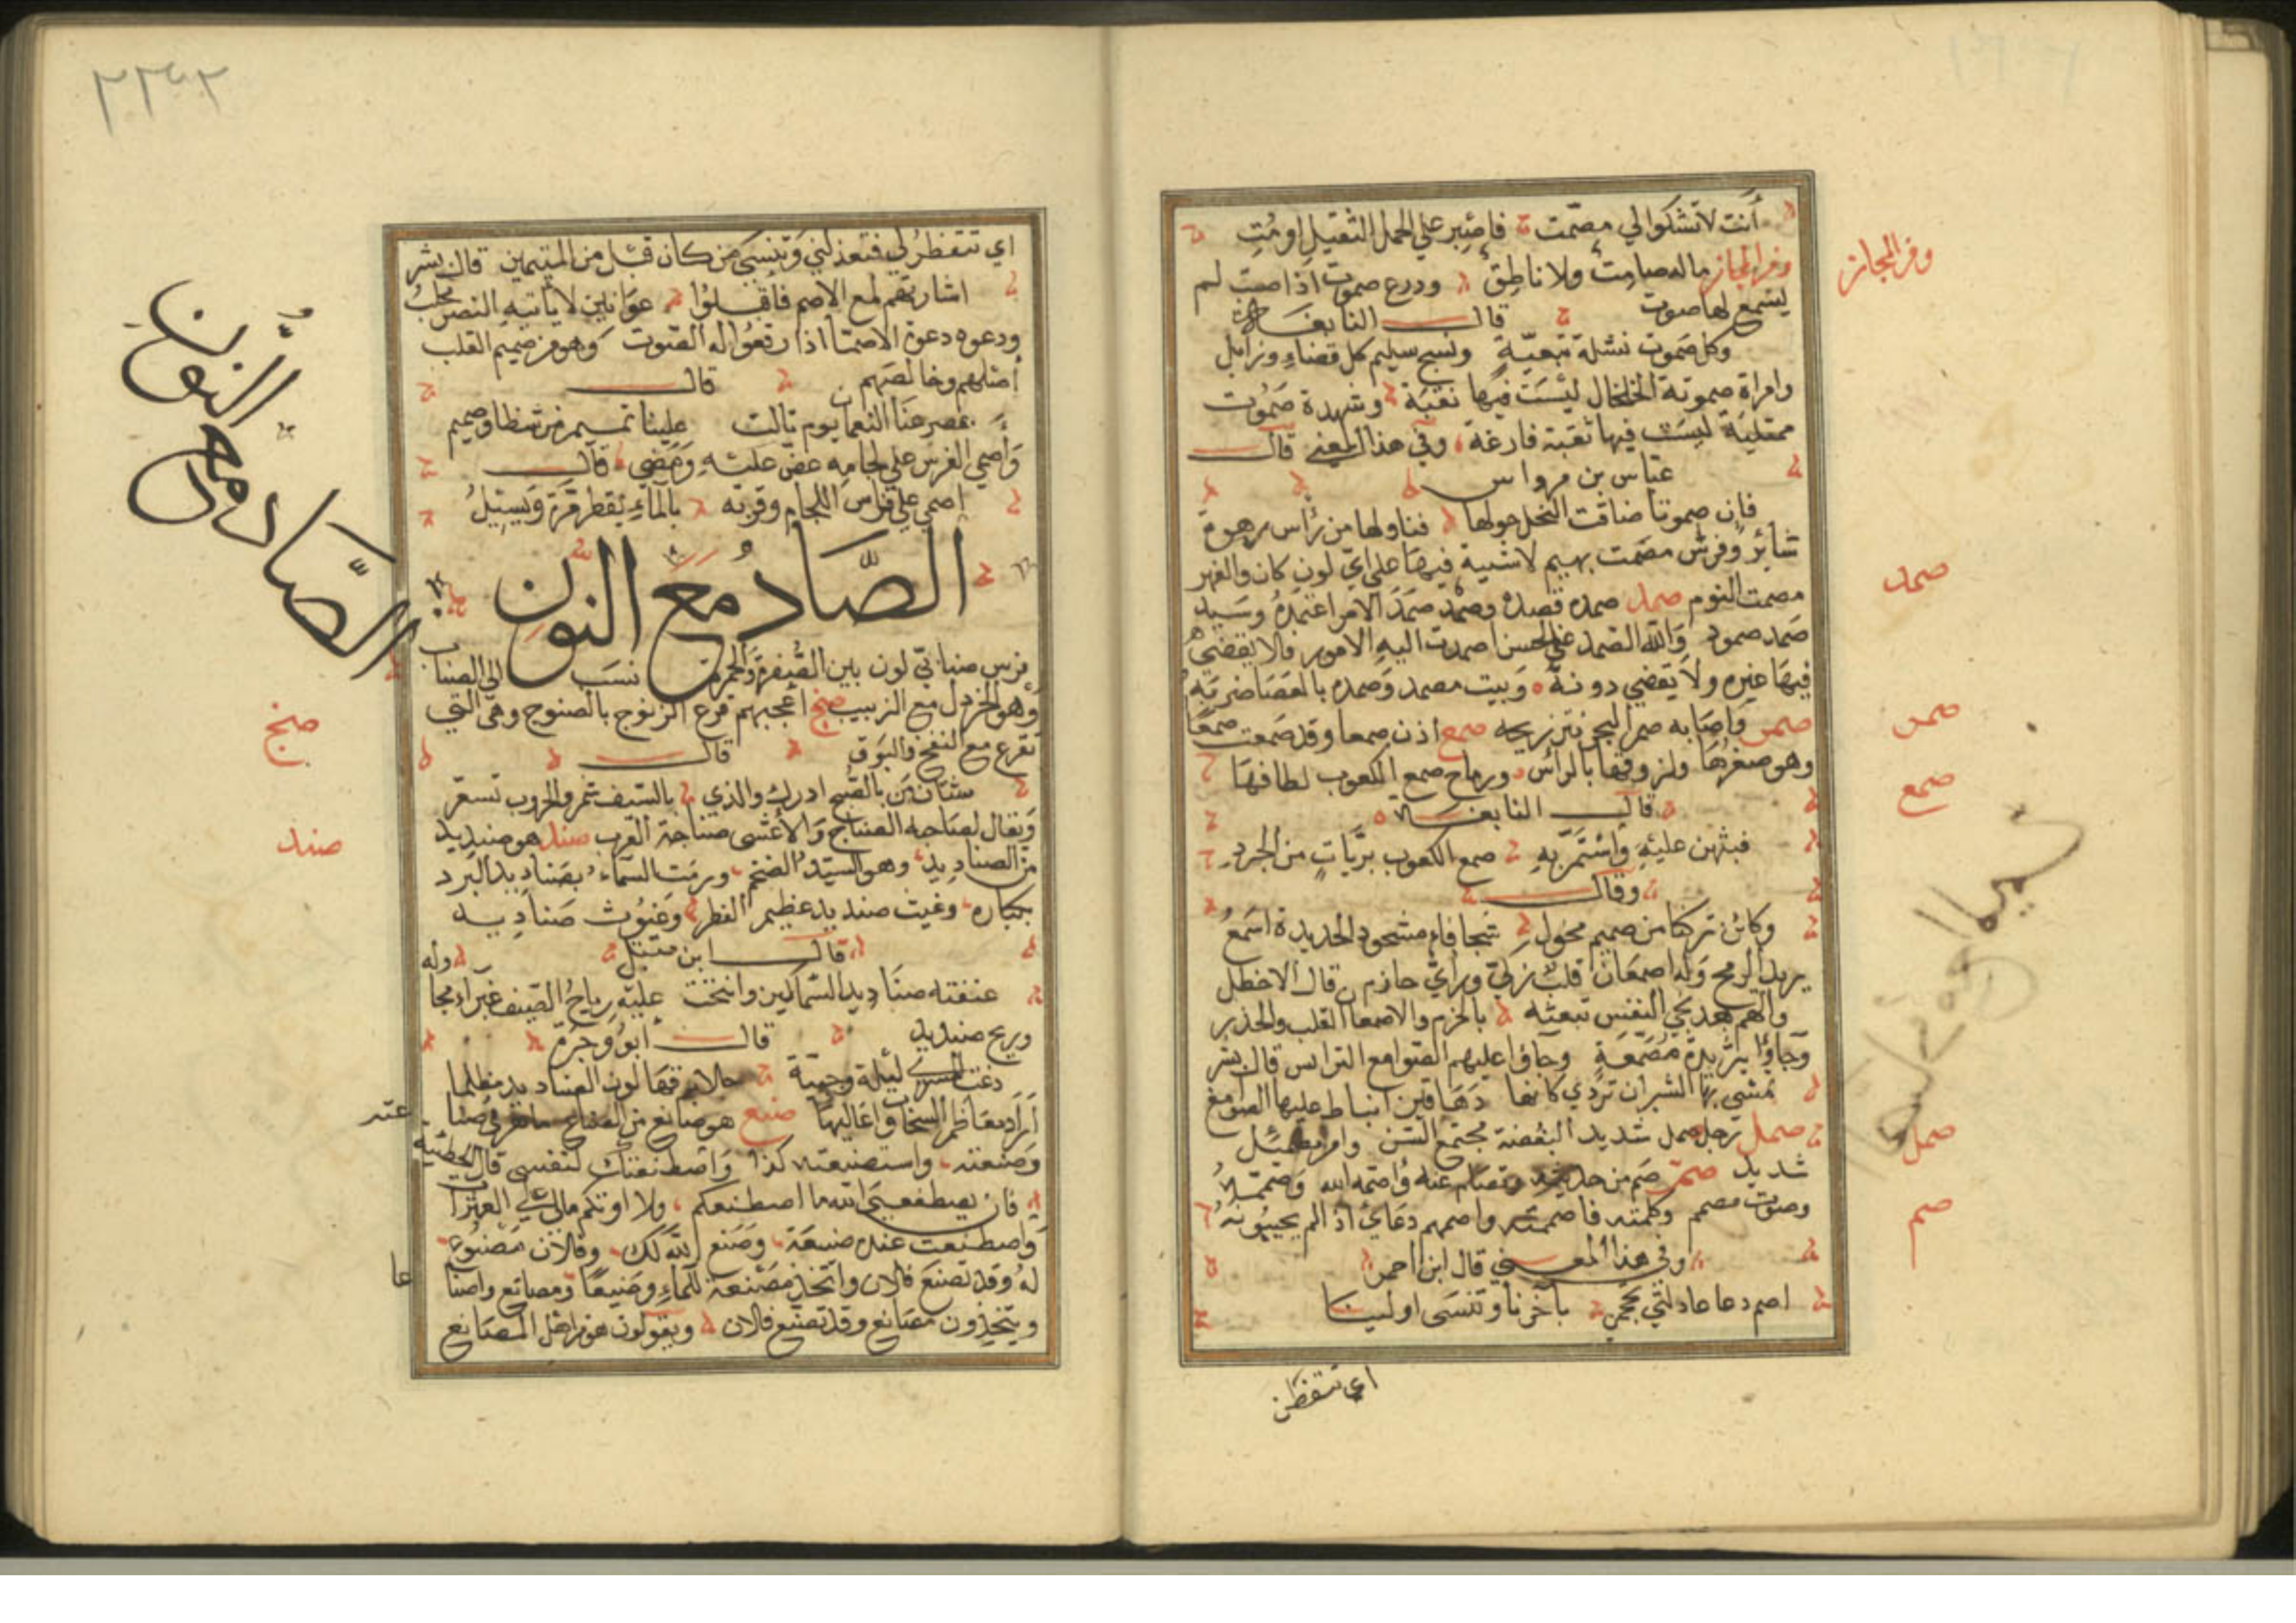 أنت لا تشكوا لي مصمت فاصبر علي الحمل الثقيل او مُتِ
ومن المجاز ماله صامت ولا ناطق ودرع صموت اذا صبت لم
يسمع لها صوت قال النابغة
وكل صموت نثلة تبعية ونسج سليم كل قضاء ذايل
وامراة صموتة الخلخال ليست فيها نقبة وشهدة صموت
ممتلية ليست فيها ثقبة فارغة وفي هذا المعني قال
عباس بن مرداس
فان صموتا ضاقت النحل حولها فناولها من رأس رهوة
شائر وفرس مصمت بهيم لاشية فيها علي اي لون كان والفهر
مصمت النوم صمد صمده قصده وصمد صمد الامر اعتمده وسيد
صمد صمود والله الصمد عن الحسن اصمدت اليه الامور فلا يقضي
فيها غيره ولا يقضي دونه وبيت مصمد وصمده بالعصا ضربه
صمر واصابه صمر البحر نتن ريحه صمع اذن صمعا وقد صمعت صمعا
وهو صغرها ولزوقها بالراس ورماح صمع الكعوب لطافها
قال النابغة
فبثهن عليه واستمر به صمع الكعوب بريات من الحرد
وقال
وكائن تركنا من صميم محول شحا فاه مشحوذ الحديدة اسمع
يريد الرمح وله اصمعان قلب زكي وراي حازم قال الاخطل
والهم بعد نجي النفس تبعثه بالحزم والاصمعان القلب والحذر
وجاؤا بثريدة مصمعة وجاؤا عليهم الصوامع البرانس قال بشر
تمشي بها الثيران تردي كانها دهاقين انباط عليها الصوامع
صمل رجل صمل شديد البضعة مجتمع السن وامر مصمئل
شديد صمم صم من حديثه وتصام عنه واصمه الله وصممه
وصوت مصمم وكلمته فاصممته واصمهم دعاي اذا لم يجيبونه
وفي هذا المعني قال ابن احمر
اصم دعا عاذلتي تحجى باخرنا وتنسى اولينا
اي تتفظن
وفر المجاز
صمد
صمر
صمع
صمل
صم
اي تتفطن لي فتعذلني وتنسى من كان قبل من المتيمين قال بشر
اشار بهم لمع الاصم فاقبلوا عوانين لا ياتيه النصر محلب
ودعوه دعوة الاصما اذا رفعوا له الصوت وهو من صميم القلب
أصلهم وخالصهم قال
بمصرعنا النعمان يوم تالت علينا تميم من شظا وصميم
واصمي الفرس علي لجامه عض عليه ومضي قال
اصمي علي فاس اللجام وقربه بالماء يقطر مرة ويسيل
الصاد مع النون
فرس صنابي لون بين الصفرة والحمرة نسب الي الصناب
وهو الخردل مع الزبيب صنج اعجبهم قرع الزنوج بالصنوج وهي التي
تقرع مع النفخ والبوق قال
شتان من بالصنج ادرك والذي بالسيف شمر والحروب تسعر
ويقال لصاحبه الصناج والاعشى صناجة العرب صند هو صنديد
من الصناديد وهو السيد الضخم ورمت السماء بصناديد البرد
بكباره وغيث صنديد عظيم القطر وغيوث صناديد
قال ابن مقبل وله
عفته صناديد السماكين وانتحت عليه رياح الصيف غبرا مجا
وريح صنديد قال أبو وجزة
دعتنا لمسري ليلة رجبية جلا برقها لون الصناديد مظلما
أراد معاظم السحاب واعاليها صنع هو صانع من الصناع ماهر في صنا
عته
وصنعته واستصنعته كذا واصطنعتك لنفسي قال الحطيئة
فان يصطنعني الله ما اصطنعكم ولا اوتكم مالي علي العثرا
واصطنعت عنده صنيعة وصنع الله لك وفلان مصنوع
له وقد تصنع فلان واتخذ مصنعة للماء وصنيعا ومصانع واصنا
عا
ويتخذون مصانع وقد تصنع فلان ويقولون هو من اهل المصانع
الصاد مع النون
صنج
صند